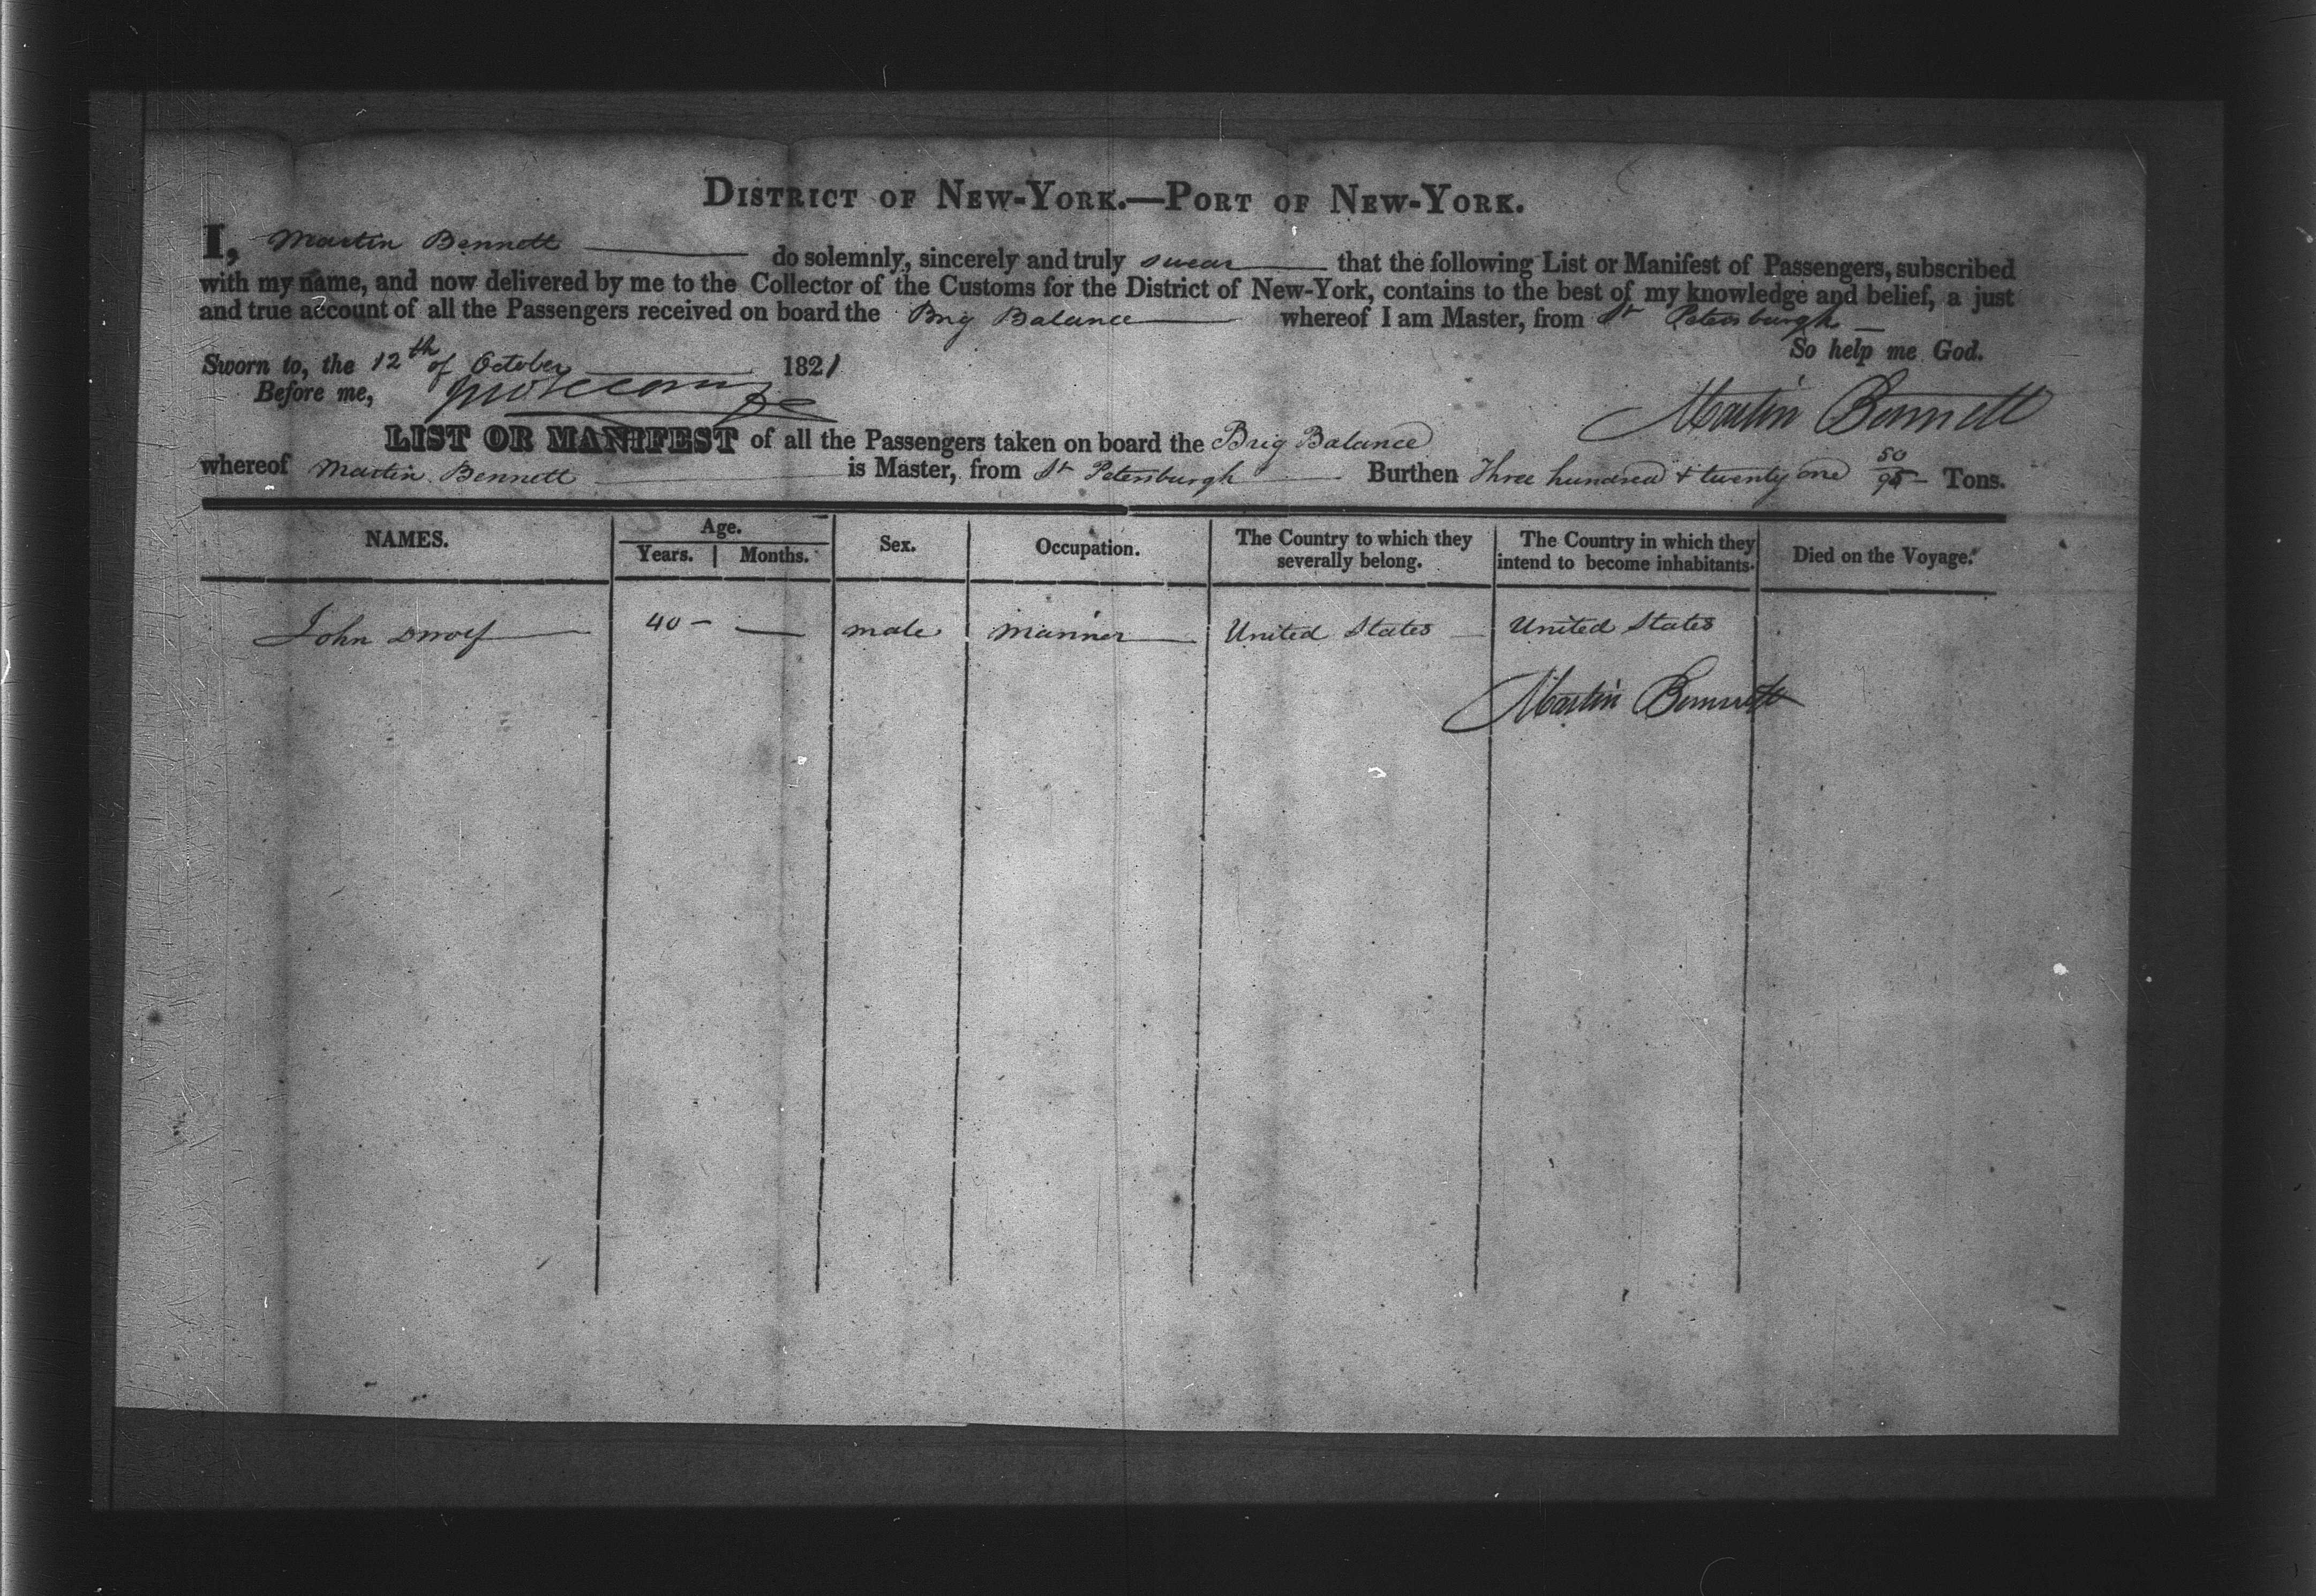 DISTRICT OF NEW-YORK.—PORT OF NEW-YORK.
I, Martin Bennett do solemnly, sincerely and truly swear that the following List or Manifest of Passengers, subscribed
with my name, and now delivered by me to the Collector of the Customs for the District of New-York, contains to the best of my knowledge and belief, a just
and true account of all the Passengers received on board the Brig Balance whereof I am Master, from St Petersburgh
So help me God.
Sworn to, the 12th of October 1821
Before me,
Martin Bennett
LIST OR MANIFEST of all the Passengers taken on board the Brig Balance
whereof Martin Bennett is Master, from St Petersburgh Burthen Three hundred & twenty one 50/95 Tons.
NAMES. Age. Years. Months. Sex. Occupation. The Country to which they severally belong. The Country in which they intend to become inhabitants. Died on the Voyage.
John Dwolf 40 — — male mariner United States United States
Martin Bennett